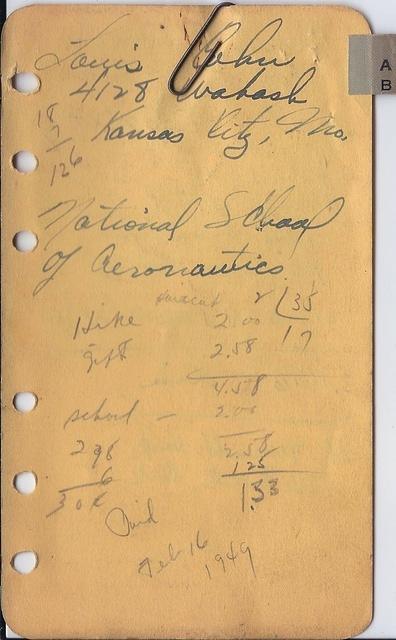 Louis
4128 Wabash
Kansas City, Mo.
18
7
126
A
B
National School
of Aeronautics
2 35
Hike 2.00 17
gift 2.58
4.58
school — 2.00
296 2.58
6 1.25
302 1.33
Paid
Feb 16
1949